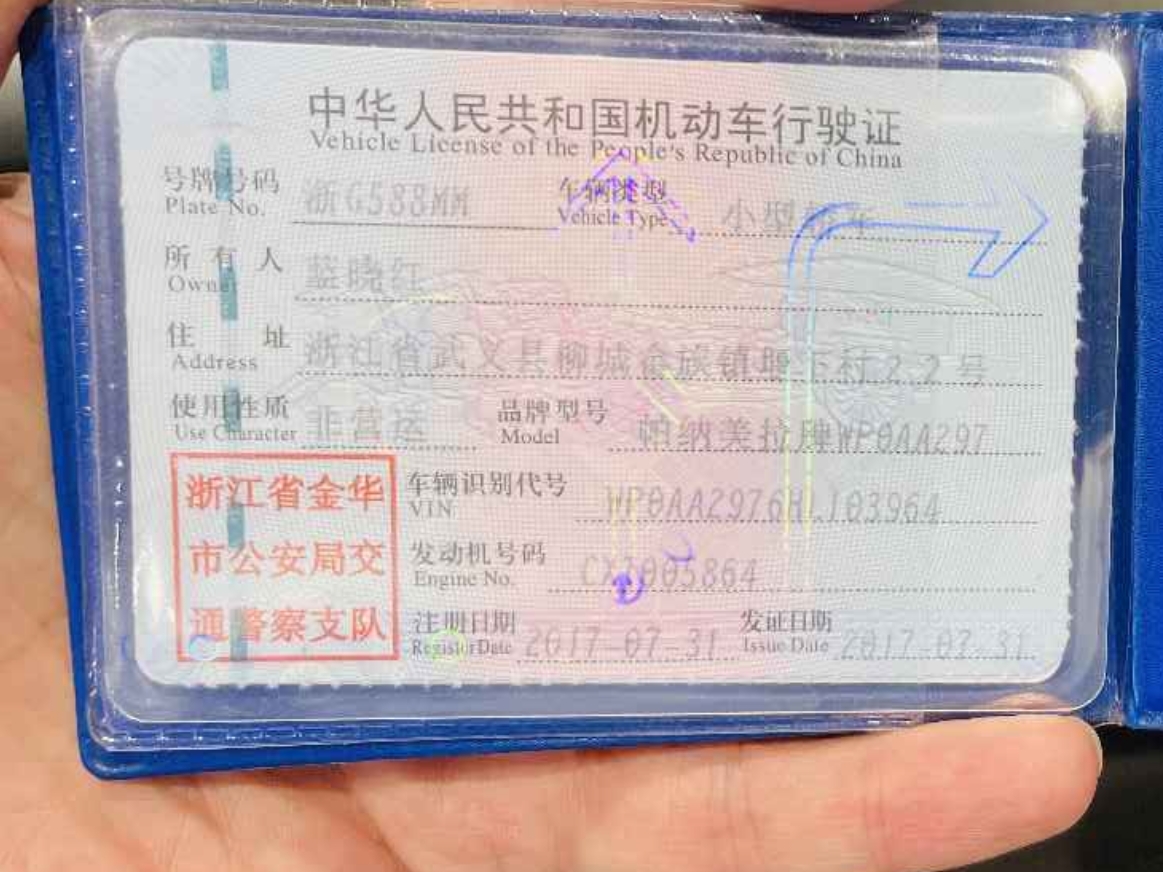 中华人民共和国机动车行驶证
Vehicle License of the People's Republic of China
号牌号码 浙G588MM 车辆类型 小型轿车
Plate No. Vehicle Type
所有人 蓝晓红
Owner
住址 浙江省武义县柳城畲族镇 下村22号
Address
使用性质 非营运 品牌型号 帕纳美拉牌WP0AA297
Use Character Model
浙江省金华 车辆识别代号 WP0AA2976HL103964
VIN
市公安局交 发动机号码 CXJ005864
Engine No.
通警察支队 注册日期 2017-07-31 发证日期 2017-07-31
Register Date Issue Date